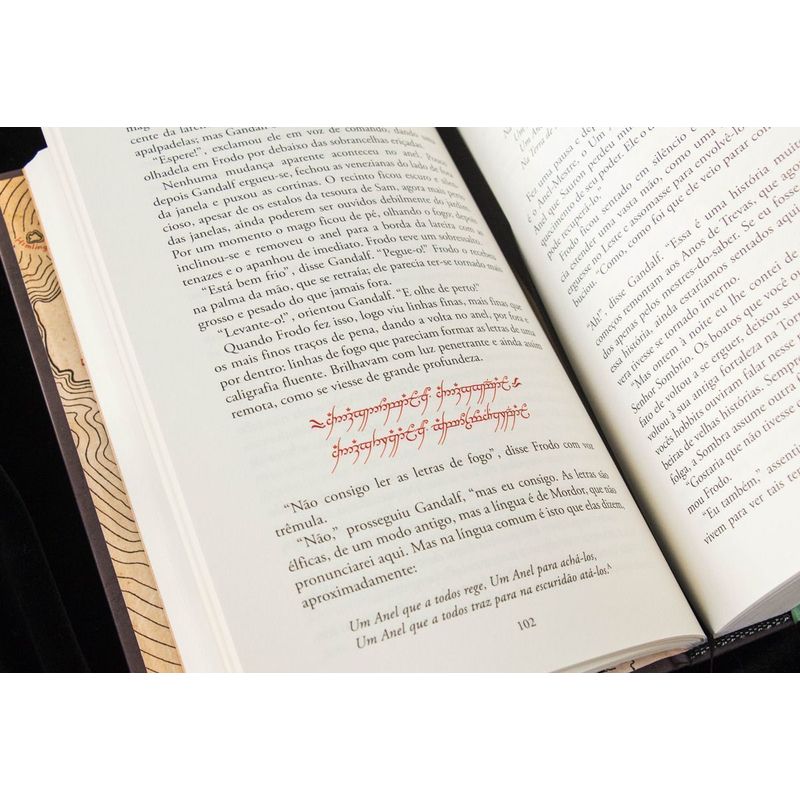 cente da
apalpadelas; mas Gandalf
"Espere!", exclamou ele em voz de comando, dando uma
olhadela em Frodo por debaixo das sobrancelhas eriçadas.
Nenhuma mudança aparente aconteceu no anel. Pouco
depois Gandalf ergueu-se, fechou as venezianas do lado de fora
da janela e puxou as cortinas. O recinto ficou escuro e silen-
cioso, apesar de os estalos da tesoura de Sam, agora mais perto
das janelas, ainda poderem ser ouvidos debilmente do jardim.
Por um momento o mago ficou de pé, olhando o fogo; depois
inclinou-se e removeu o anel para a borda da lareira com as
tenazes e o apanhou de imediato. Frodo teve um sobressalto.
"Está bem frio", disse Gandalf. "Pegue-o!" Frodo o recebeu
na palma da mão, que se retraía; ele parecia ter-se tornado mais
grosso e pesado do que jamais fora.
"Levante-o!", orientou Gandalf. "E olhe de perto!"
Quando Frodo fez isso, logo viu linhas finas, mais finas que
os mais finos traços de pena, dando a volta no anel, por fora e
por dentro: linhas de fogo que pareciam formar as letras de uma
caligrafia fluente. Brilhavam com luz penetrante e ainda assim
remota, como se viesse de grande profundeza.
"Não consigo ler as letras de fogo", disse Frodo com voz
trêmula.
"Não," prosseguiu Gandalf, "mas eu consigo. As letras são
élficas, de um modo antigo, mas a língua é de Mordor, que não
pronunciarei aqui. Mas na língua comum é isto que elas dizem,
aproximadamente:
Um Anel que a todos rege, Um Anel para achá-los,
Um Anel que a todos traz para na escuridão atá-los.ᴬ
102
Um Anel
Na Terra de
Fez uma pausa e dep
é o Anel-Mestre, o Um A
Anel que Sauron perdeu mui
quecimento de seu poder. Ele o
pode recuperá-lo."
Frodo ficou sentado em silêncio e
cia estender uma vasta mão, como uma
erguesse no Leste e assomasse para envolvê-lo
buciou. "Como, como foi que ele veio parar co
"Ah!", disse Gandalf. "Essa é uma história muito
começos remontam aos Anos de Trevas, que ago
dos apenas pelos mestres-do-saber. Se eu fosse
essa história, ainda estaríamos sentados aqui
vera tivesse se tornado inverno.
"Mas ontem à noite eu lhe contei de
Senhor Sombrio. Os boatos que você o
fato ele voltou a se erguer, deixou seu
voltou à sua antiga fortaleza na Torr
vocês hobbits ouviram falar nesse
beiras de velhas histórias. Sempre
folga, a Sombra assume outra
"Gostaria que não tivesse
mou Frodo.
"Eu também," assenti
vivem para ver tais tem